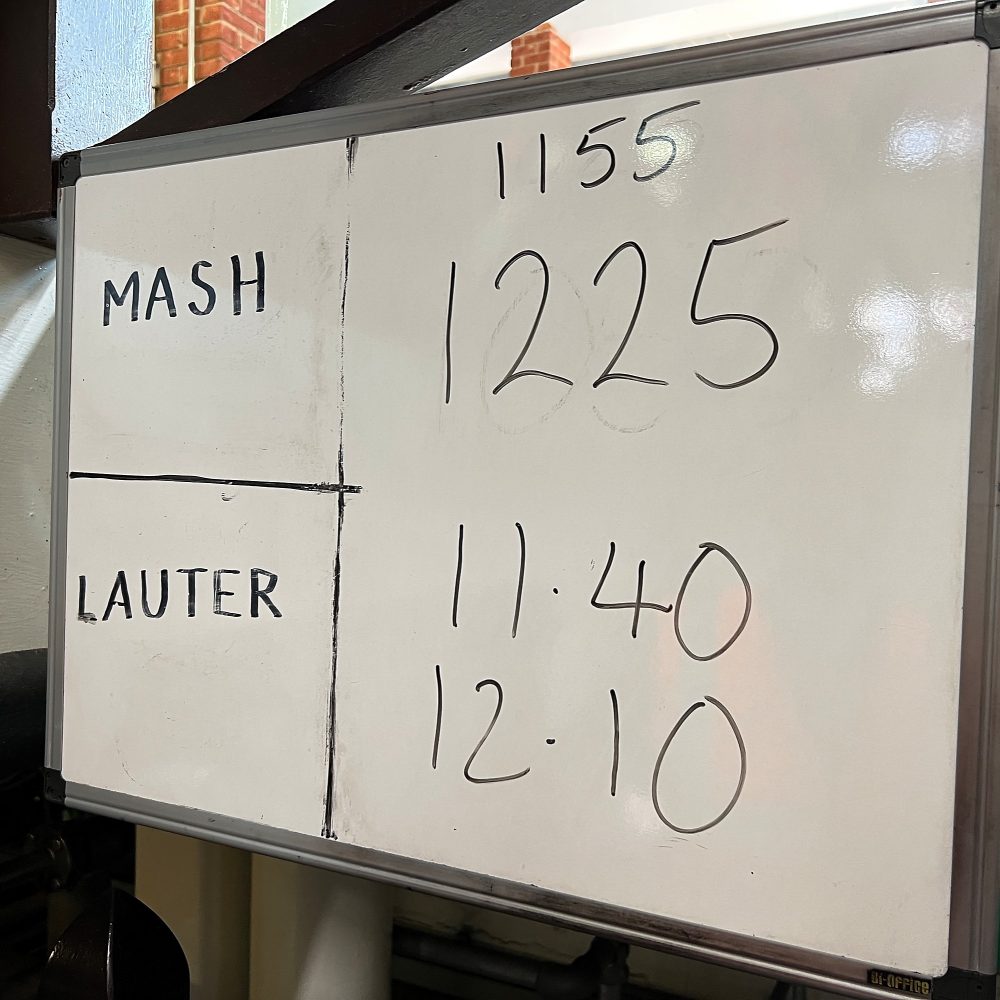 1155
MASH
1225
LAUTER
11·40
12·10
BI-OFFICE